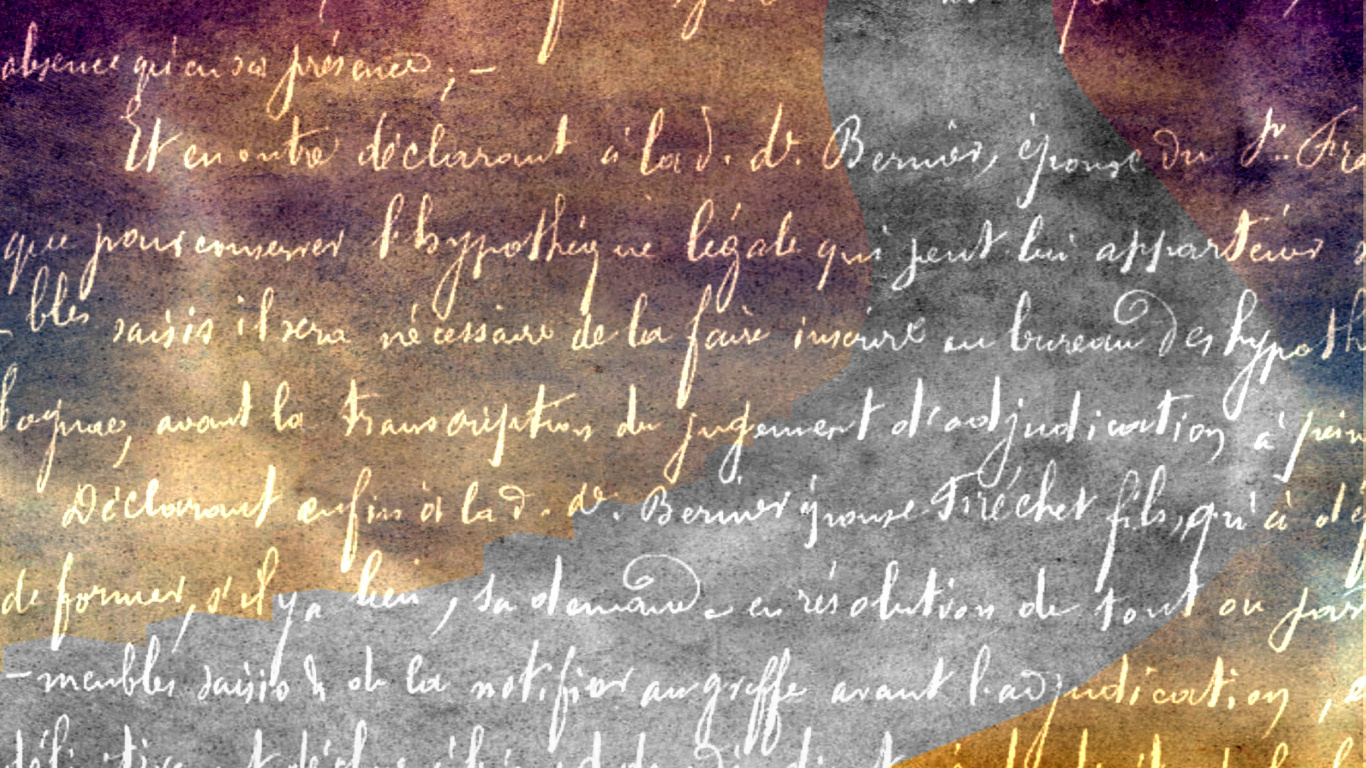 absence qu'en sa présence ; —
Et en outre déclarant à la d. de. Bernier, épouse du Sr. Fré
que pour conserver l'hypothèque légale qui peut lui appartenir s
- bles saisis il sera nécessaire de la faire inscrire au bureau des hypoth
logne, avant la transcription du jugement d'adjudication, à pein
Déclarant enfin à la d. de. Bernier épouse Fréchet fils, qu'à dé
de former, s'il y a lieu, sa demande en résolution de tout ou par
- meubles saisis & de la notifier au greffe avant l'adjudication,